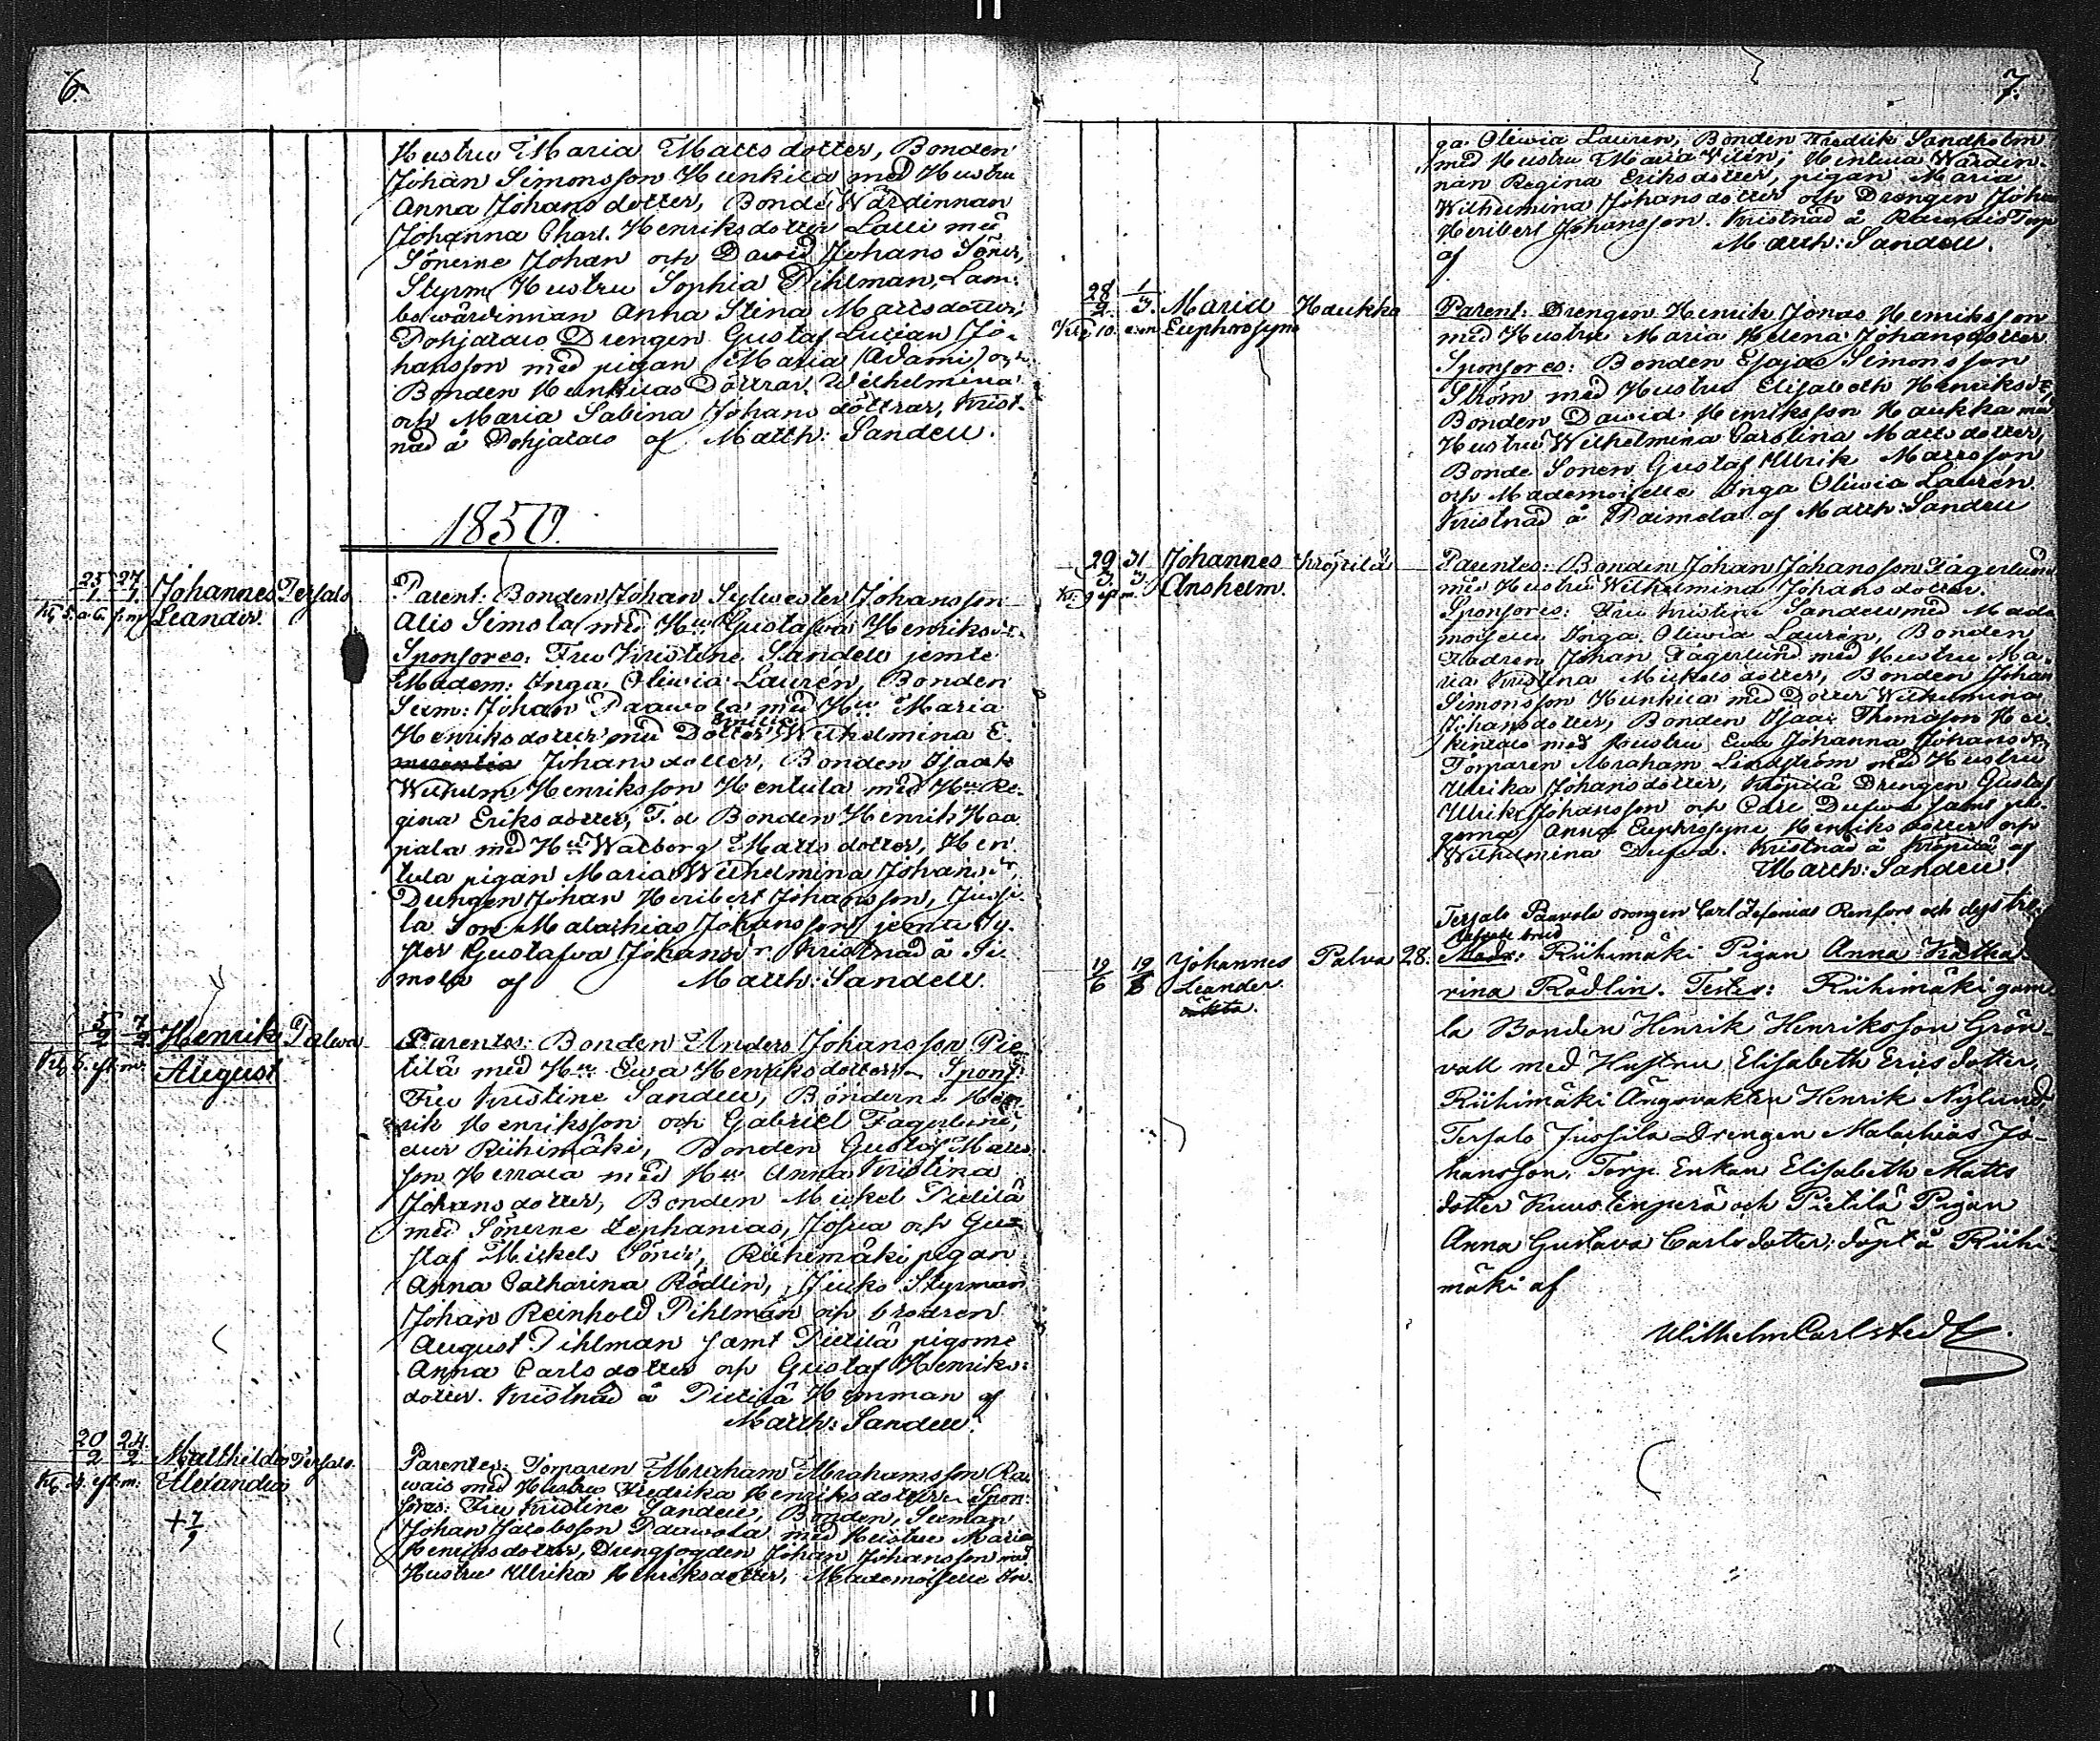 6.
Hustru Maria Matts dotter, Bonden
Johan Simonsson Hunkila med Hustru
Anna Johans dotter, Bonde Wärdinnan
Johanna Charl. Henriks dotter Lalli med
Sönerne Johan och David Johans Söner,
Styrm. Hustru Sophia Pihlman, Lam-
bo wärdinnan Anna Stina Matts dotter,
Pohjatalo Drengen Gustaf Lucian Jo-
hansson med pigan Maria (Adami) och
Bonden Hunkilas Döttrar Wilhelmina
och Maria Sabina Johans döttrar, Krist-
nad å Pohjatalo af Matth: Sandell.
1850.
25/1 27/1 Johannes Tersalo
Kl. 5 a 6. f.m. Leander.
Parent: Bonden Johan Sylvester Johansson
Alis Simola med Hu Gustafva Henriksdr.
Sponsores: Fru Kristine Sandell jemte
Madem: Inga Oliwia Laurén, Bonden
Seem: Johan Paavola med Hu Maria
Henriks dotter med Dotter Emilia Wilhelmina E.
Johans dotter, Bonden Isaak
Wilhelm Henriksson Hentula med Hu Re-
gina Eriks dotter, F. d Bonden Henrik Haa
pala med Hu Walborg Matts dotter, Hen
tula pigan Maria Wilhelmina Johansdr,
Drengen Johan Heribert Johansson, Jussi-
la Son Malachias Johansson jemte Sy-
ster Gustafva Johansdr. Kristnad å Si
mola af Matth: Sandell.
5/2 7/2 Henrik Palva
Kl. 6. eft.m. August
Parentes: Bonden Anders Johansson Pie
tilä med Hu Ewa Henriks dotter. Spons:
Fru Kristine Sandell, Bönderne Hen
rik Henriksson och Gabriel Fagerlund,
eller Riihimäki, Bonden Gustaf Matts
son Herrala med Hu Anna Kristina
Johans dotter, Bonden Mickel Pietilä
med Sönerne Zephanias, Josua och Gu-
staf Mickels Söner, Riihimäki pigan
Anna Catharina Rödlin, Juko Styrman
Johan Reinhold Pihlman och brodren
August Pihlman samt Pietilä pigorne
Anna Carls dotter och Gustaf Henriks-
dotter. Kristnad å Pietilä Hemman af
Matth: Sandell.
20/2 24/2 Mathilda Tersalo.
Kl. eft.m: Alexandra
+ 7/9
Parentes: Torparen Abraham Abrahamsson Ra-
wais med Hustru Fredrika Henriks dotter. Spon-
sores: Fru Kristine Sandell, Bonden, Seeman
Johan Jacobsson Paavola med Hustru Maria
Henriks dotter, Drengfogden Johan Johansson med
Hustru Ulrika Henriksdotter, Mademoiselle In-
7.
ga Oliwia Laurén, Bonden Fredrik Sandholm
med Hustru Maria Vilén, Hentula Wärdin-
nan Regina Eriks dotter, pigan Maria
Wilhelmina Johans dotter och Drengen Johan
Heribert Johansson. Kristnad å Rawais Torp
af Matth: Sandell.
28/2 1/3. Maria Haukka
Kl. 10. Euphrosyne
Parent: Drengen Henrik Jonas Henriksson
med Hustru Maria Helena Johans dotter
Sponsores: Bonden Esajas Simonsson
Ström med Hustru Elisabeth Henriksdr,
Bonden David Henriksson Haukka med
Hustru Wilhelmina Carolina Matts dotter,
Bonde Sonen Gustaf Ulrik Mattsson
och Mademoiselle Inga Oliwia Laurén.
Kristnad å Paimela af Matth: Sandell
29/3. 31/3. Johannes Kröpilä
Kl. 9 eft m. Anshelm.
Parentes: Bonden Johan Johansson Fagerlund
med Hustru Wilhelmina Johans dotter.
Sponsores: Fru Kristine Sandell med Made
moiselle Inga Oliwia Laurén, Bonden
Fadren Johan Fagerlund med Hustru Ma-
ria Kristina Mickels dotter, Bonden Johan
Simonsson Hunkila med Dotter Wilhelmina
Johansdotter, Bonden Isaac Thomasson Hei
kintalo med Hustru Ewa Johanna Johansdr,
Torparen Abraham Lindström med Hustru
Ulrika Johans dotter, Kröpilä Drengen Gustaf
Ulrik Johansson och Carl Dufva samt pi-
gorna Anna Euphrosyne Henriks dotter och
Wilhelmina Dufva. Kristnad å Kröpilä af
Matth: Sandell.
Tersalo Paavola drengen Carl Zefanias Renfors och dess
brud
19/6 19/6 Johannes Palva 28.
Leander
oäkta.
Modr: Riihimäki Pigan Anna Katha-
rina Rödlin. Testes: Riihimäki gam-
la Bonden Henrik Henriksson Grön-
vall med Hustru Elisabeth Ericsdotter,
Riihimäki Ängsvakten Henrik Nylund,
Tersalo Jussila Drengen Malachias Jo-
hansson, Torp. Enkan Elisabeth Matts
dotter Kuustenperä och Pietilä Pigan
Anna Gustava Carlsdotter; döpt å Riihi-
mäki af
Wilhelm Carlstedt.